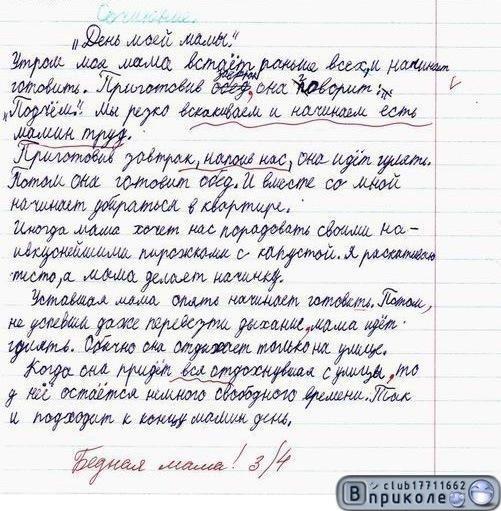 Сочинение.
„День моей мамы."
Утром моя мама встаёт раньше всех, и начинает
готовить. Приготовив завтрак, она говорит:
„Подъём". Мы резко вскакиваем и начинаем есть
мамин труд.
Приготовив завтрак, напоив нас, она идёт гулять.
Потом она готовит обед. И вместе со мной
начинает убираться в квартире.
Иногда мама хочет нас порадовать своими на-
ивкуснейшими пирожками с капустой. Я раскатываю
тесто, а мама делает начинку.
Уставшая мама опять начинает готовить. Потом,
не успевши даже перевезти дыхание, мама идёт
гулять. Обычно она отдыхает только на улице.
Когда она придёт вся отдохнувшая с улицы, то
у неё остаётся немного свободного времени. Так
и подходит к концу мамин день.
Бедная мама! 3/4
club17711662
В приколе